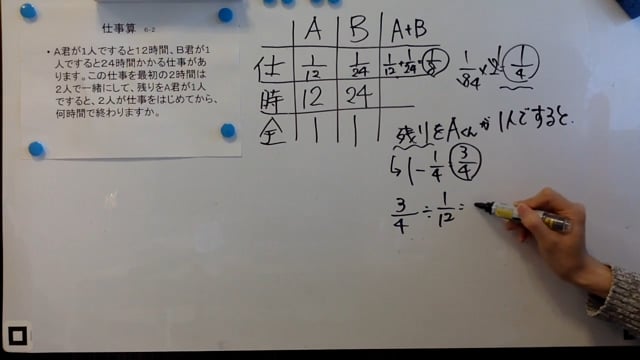 仕事算 6-2
・A君が1人ですると12時間、B君が1
人ですると24時間かかる仕事があ
ります。この仕事を最初の2時間は
2人で一緒にして、残りをA君が1人
ですると、2人が仕事をはじめてから、
何時間で終わりますか。
A B A+B
仕 1/12 1/24 1/12+1/24=1/8
時 12 24
全 1 1
1/84×2 1/4
残りをAくんが1人ですると.
↳1-1/4 3/4
3/4÷1/12=